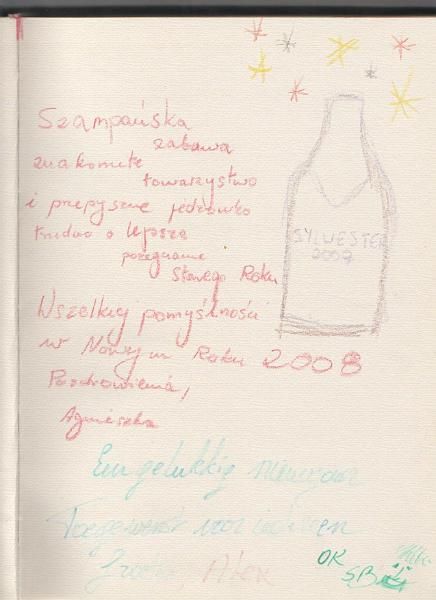 Szampańska
zabawa
znakomite
towarzystwo
i przepyszne jedzonko
trudno o lepsze
pożegnanie
Starego Roku
Wszelkiej pomyślności
w Nowym Roku 2008
Pozdrowienia,
Agnieszka
SYLWESTER
2007
Een gelukkig nieuwjaar
Toegewenst voor iedereen
Alex
OK